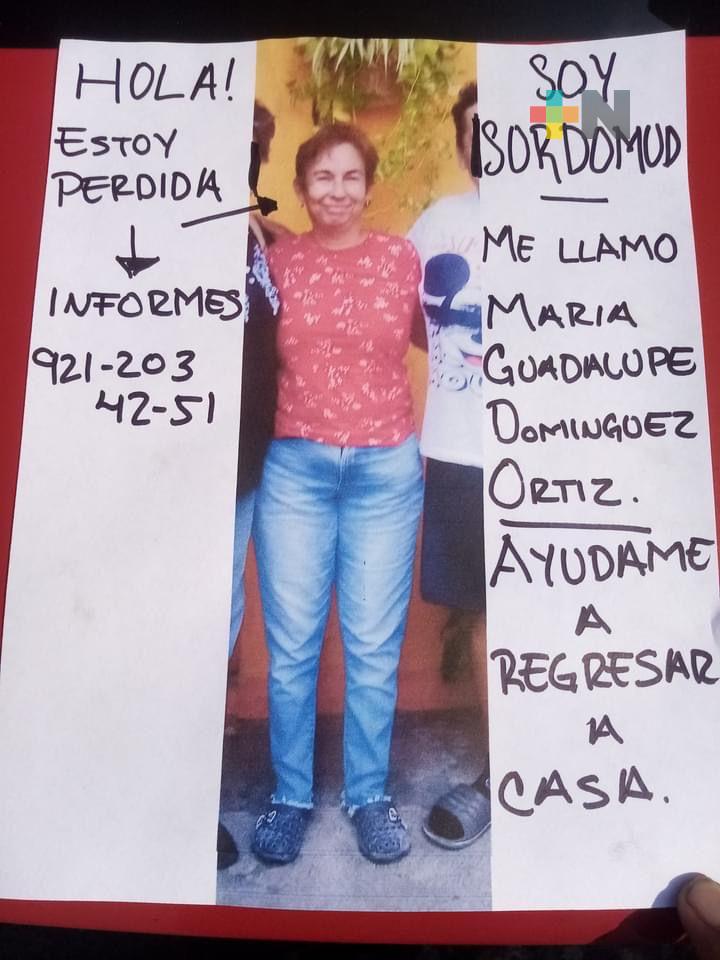 HOLA!
ESTOY
PERDIDA
INFORMES
921-203
42-51
SOY
SORDOMUD
ME LLAMO
MARIA
GUADALUPE
DOMINGUEZ
ORTIZ.
AYUDAME
A
REGRESAR
A
CASA.
+N